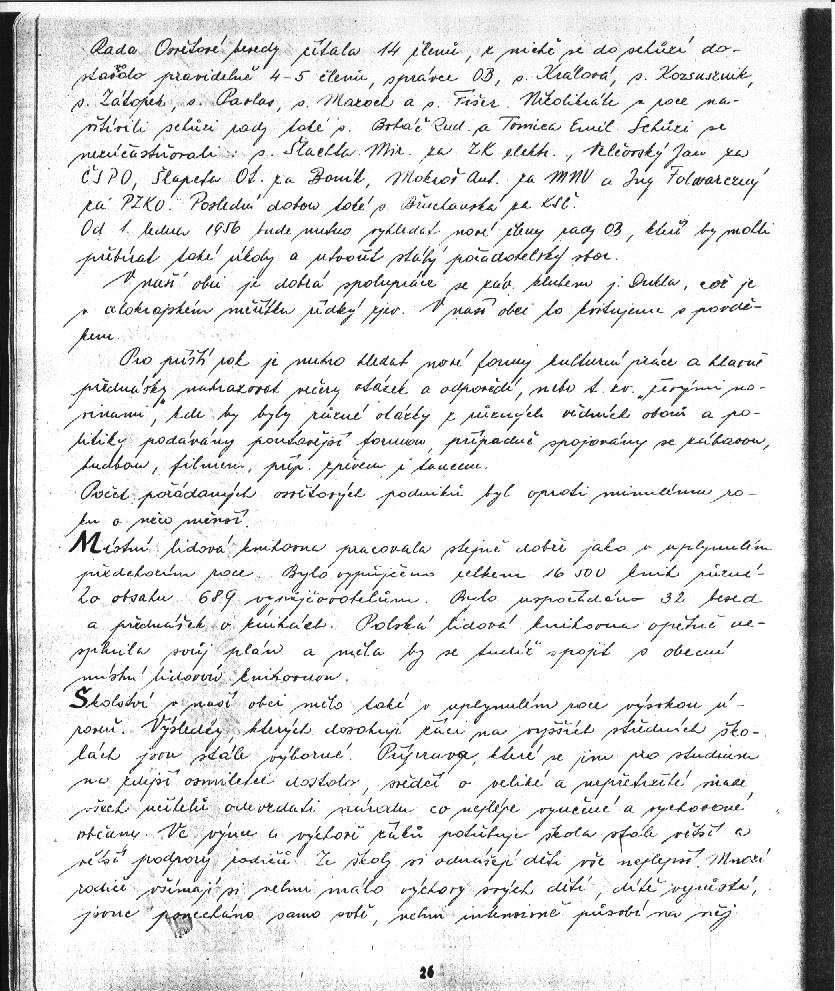 Rada Osvětové besedy čítala 14 členů, z nichž se do schůzí do-
stavilo pravidelně 4-5 členů, správce OB, s. Králová, s. Kozsusznik,
s. Zátopek, s. Pavlas, s. Maroch a s. Fišer. Několikráte v roce na-
vštívili schůzi rady také s. Botač Rud. a Tomica Emil. Schůzí se
nezúčastňovali: s. Šlachta Mir. za ZK elektr., Klčovský Jan za
ČSPO, Šlapeta Ot. za Baník, Mokroš Ant. za MNV a Ing Folwarczný
za PZKO. Poslední dobou také s. Břuchanská za KSČ.
Od 1. ledna 1956 bude nutno vyhledat nové členy rady OB, kteří by mohli
přibírat také úkoly a utvořit stálý pořadatelský sbor.
V naší obci je dobrá spolupráce se záv. klubem j. Dukla, což je
v celokrajském měřítku řídký zjev. V naší obci to kvitujeme s povdě-
kem.
Pro příští rok je nutno hledat nové formy kulturní práce a hlavně
přednášky nahrazovat večery otázek a odpovědí, nebo t. zv. "živými no-
vinami", kde by byly různé otázky z různých vědních oborů a po-
litiky podávány poutavější formou, případně spojovány se zábavou,
hudbou, filmem, příp. zpěvem i tancem.
Počet pořádaných osvětových podniků byl oproti minulému ro-
ku o něco menší.
Místní lidová knihovna pracovala stejně dobře jako v uplynulém
předchozím roce. Bylo vypůjčeno celkem 16 500 knih různé-
ho obsahu 689 vypůjčovatelům. Bylo uspořádáno 32 besed
a přednášek o knihách. Polská lidová knihovna opětně ne-
splnila svůj plán a měla by se tudíž spojit s obecní
místní lidovou knihovnou.
Školství v naší obci mělo také v uplynulém roce vysokou ú-
roveň. Výsledky, kterých dosahují žáci na vyšších středních ško-
lách jsou stále výborné. Příprava, které se jim pro studium
na zdejší osmiletce dostalo, svědčí o veliké a nepřetržité snaze
všech učitelů odevzdati národu co nejlépe vyučené a vychované
občany. Ve výuce a výchově žáků potřebuje škola stále větší a
větší podpory rodičů. Ze školy si odnášejí děti vše nejlepší. Mnozí
rodiče všímají si velmi málo výchovy svých dětí, dítě vyrůstá,
jsouc ponecháno samo sobě, velmi intensivně působí na něj
26